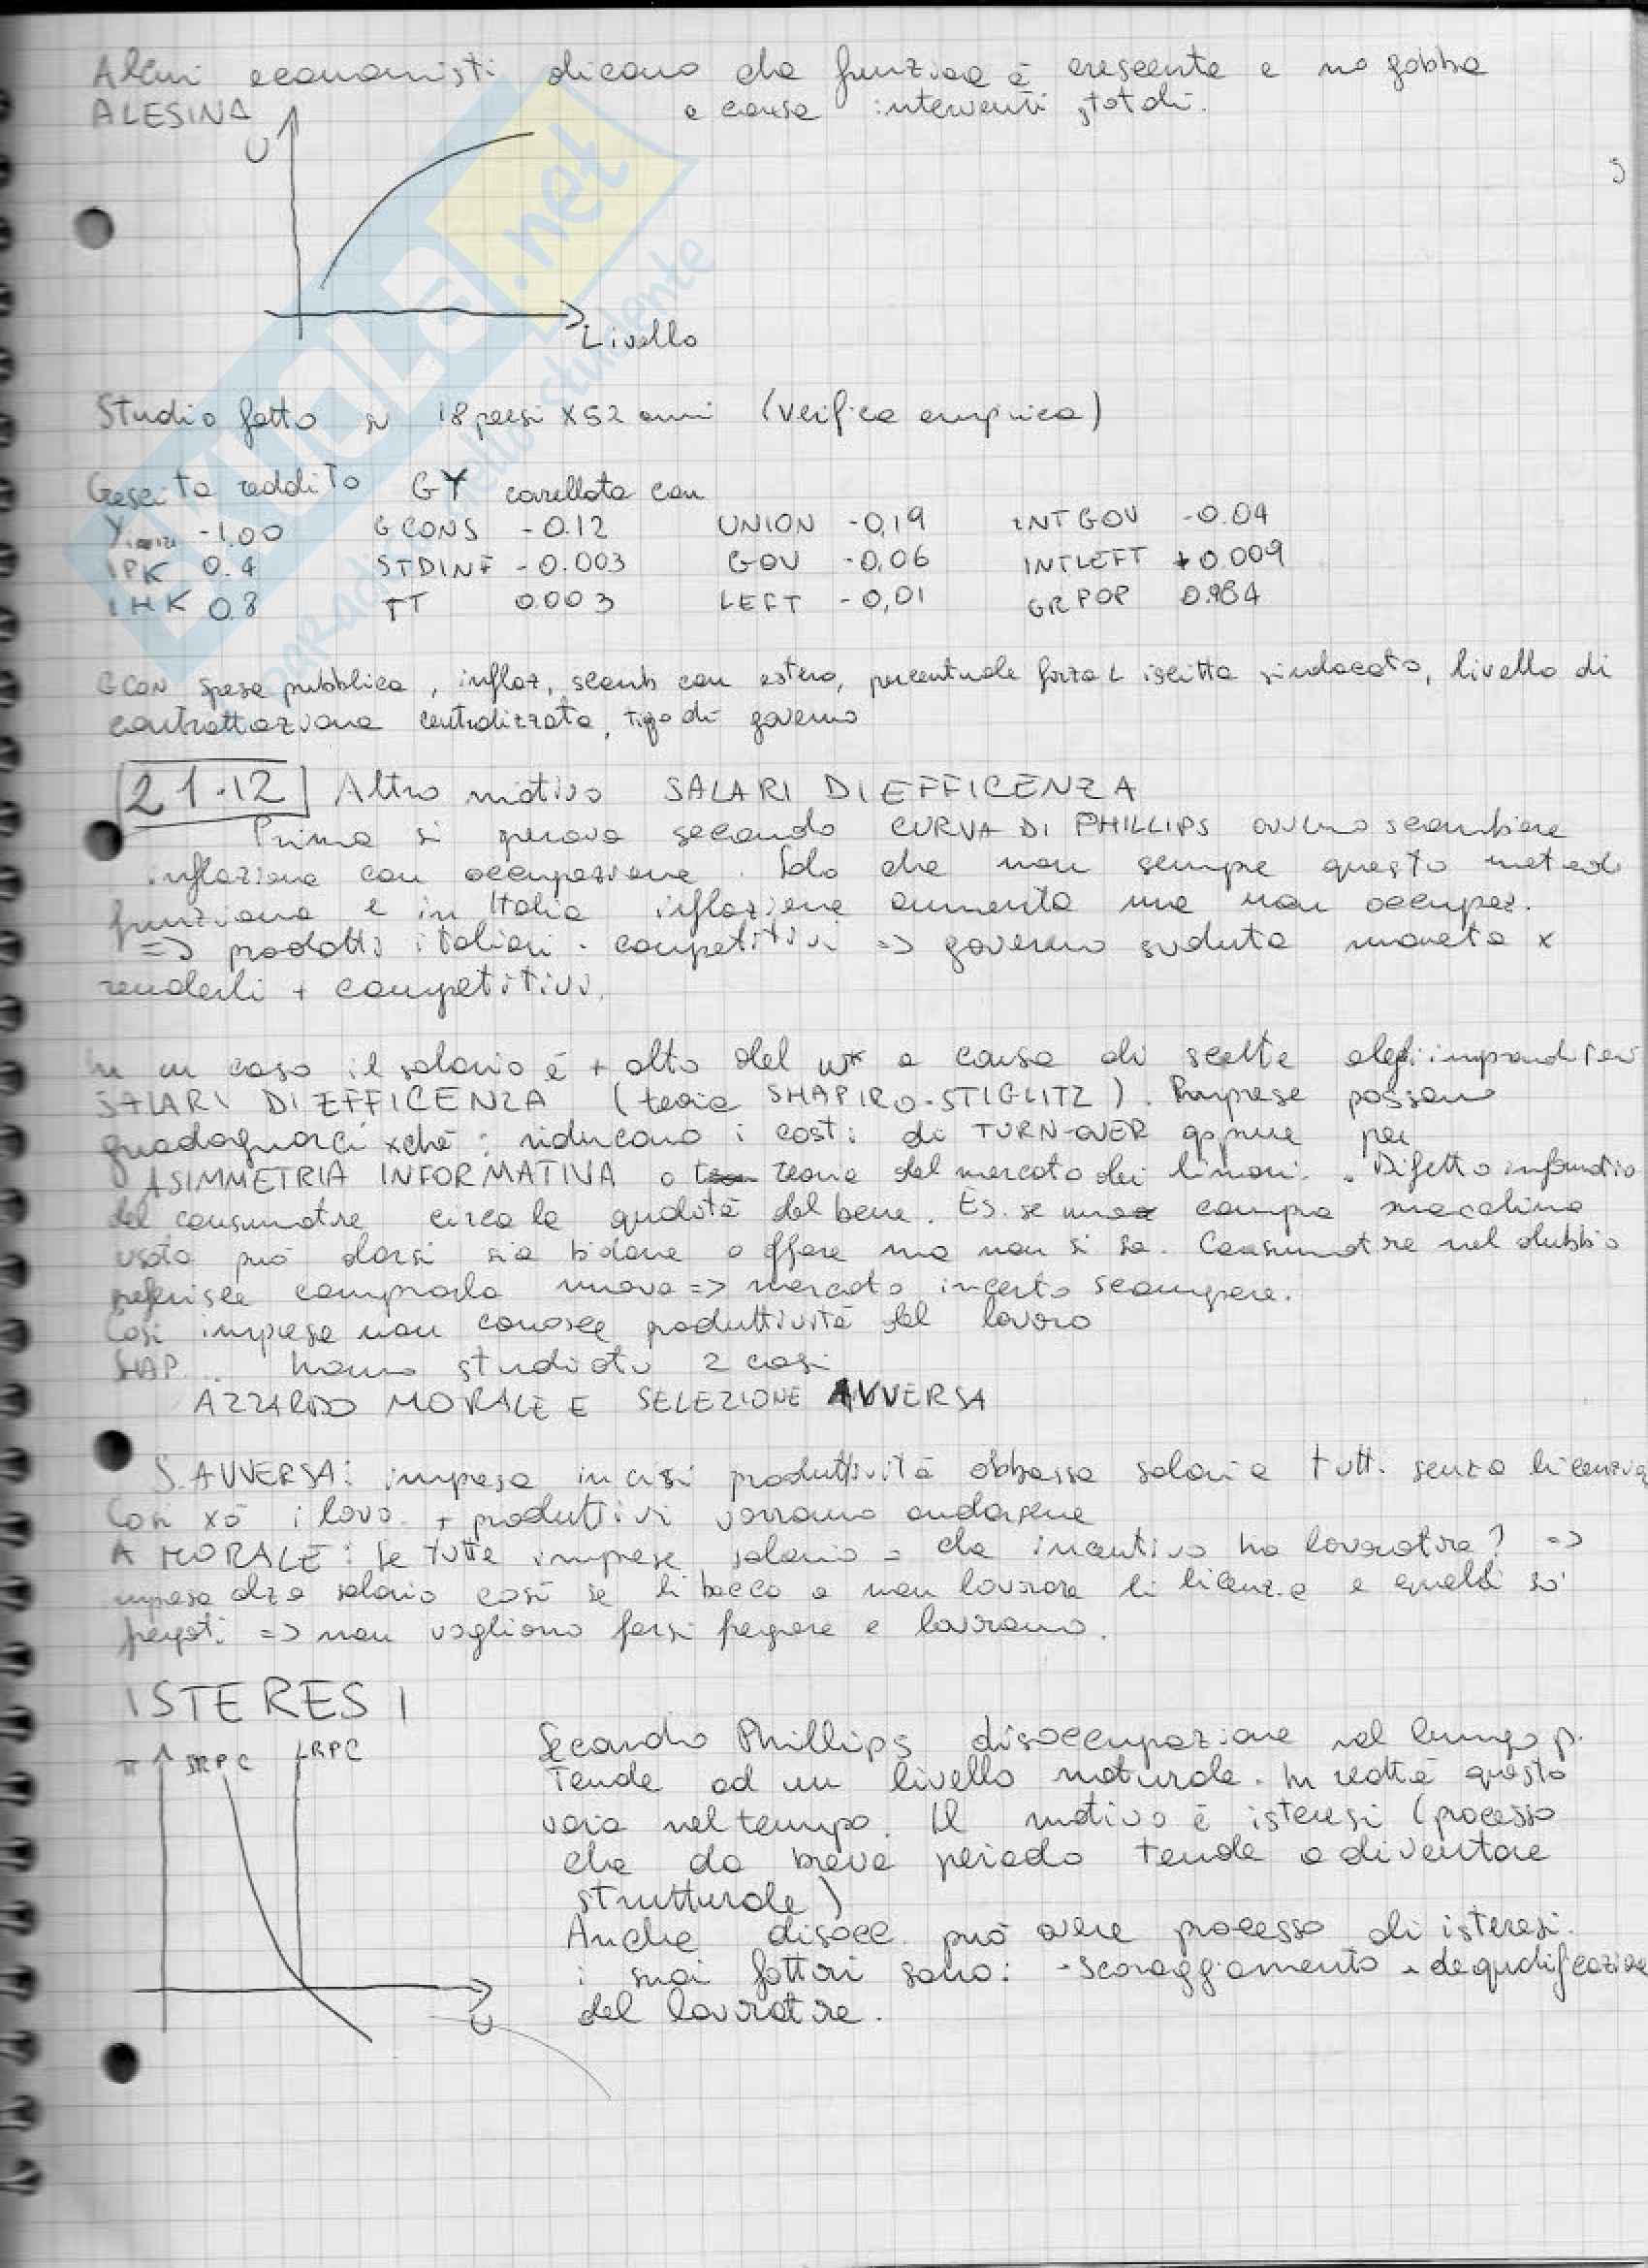 Alcuni economisti dicono che funzione è crescente e no gobba
ALESINA
a causa interventi statali.
U
9
Livello
Studio fatto su 18 paesi x 52 anni (verifica empirica)
Crescita reddito GY correllata con
Y -1.00 GCONS -0.12 UNION -0,19 INTGOV -0.04
IPK 0.4 STDINF -0.003 GOV -0,06 INTLEFT +0.009
IHK 0.8 TT 0.003 LEFT -0,01 GRPOP 0.984
GCON spesa pubblica, inflaz, scamb con estero, percentuale forza L iscitta sindacato, livello di
contrattazione centralizzata, tipo di governo
21.12 Altro motivo SALARI DI EFFICENZA
Prima si operava secondo CURVA DI PHILLIPS ovvero scambiare
inflazione con occupazione. Solo che non sempre questo metodo
funziona e in Italia inflazione aumenta ma non occupaz.
=> prodotti italiani - competitivi => governo svaluta moneta x
renderli + competitivi.
In un caso il salario è + alto del w* a causa di scelte degli imprenditori
SALARI DI EFFICENZA (teoria SHAPIRO-STIGLITZ). Imprese possono
guadagnarci xchè: riducono i costi di TURN-OVER oppure per
ASIMMETRIA INFORMATIVA o teoria del mercato dei limoni. Difetto informativo
del consumatore circa la qualità del bene. Es. se uno compra macchina
usata può darsi sia bidone o affare ma non si sa. Consumatore nel dubbio
preferisce comprarla nuova => mercato incerto scompare.
Così imprese non conosce produttività del lavoro
SHAP... hanno studiato 2 casi
AZZARDO MORALE E SELEZIONE AVVERSA
S. AVVERSA: impresa in crisi produttività abbassa salari a tutti senza licenziare
Così xò i lavo. + produttivi vorranno andarsene
A MORALE: se tutte imprese salario = che incentivo ha lavoratore? =>
impresa alza salario così se li becco a non lavorare li licenzio e quelli so'
fregati => non vogliono farsi fregare e lavorano.
ISTERESI
π SRPC LRPC
U
Secondo Phillips disoccupazione nel lungo p.
tende ad un livello naturale. In realtà questo
varia nel tempo. Il motivo è isteresi (processo
che da breve periodo tende a diventare
strutturale)
Anche disocc. può avere processo di isteresi.
i suoi fattori sono: - scoraggiamento - dequalificazione
del lavoratore.